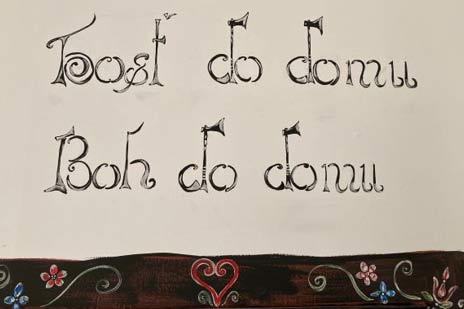 Hosť do domu
Boh do domu